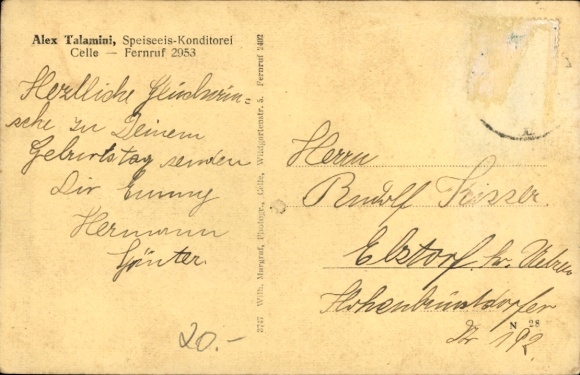 Alex Talamini, Speiseeis-Konditorei
Celle — Fernruf 2953
Herzlliche Glückwün
sche zu Deinem
Geburtstag senden
Dir Emmy
Hermann
Günter.
20.-
3747 Wilh. Margraf, Photogr., Celle, Wildgartenstr. 5, Fernruf 2402
Herrn
Rudolf
Elstorf kr. Uelzen
N 28
Nr 192